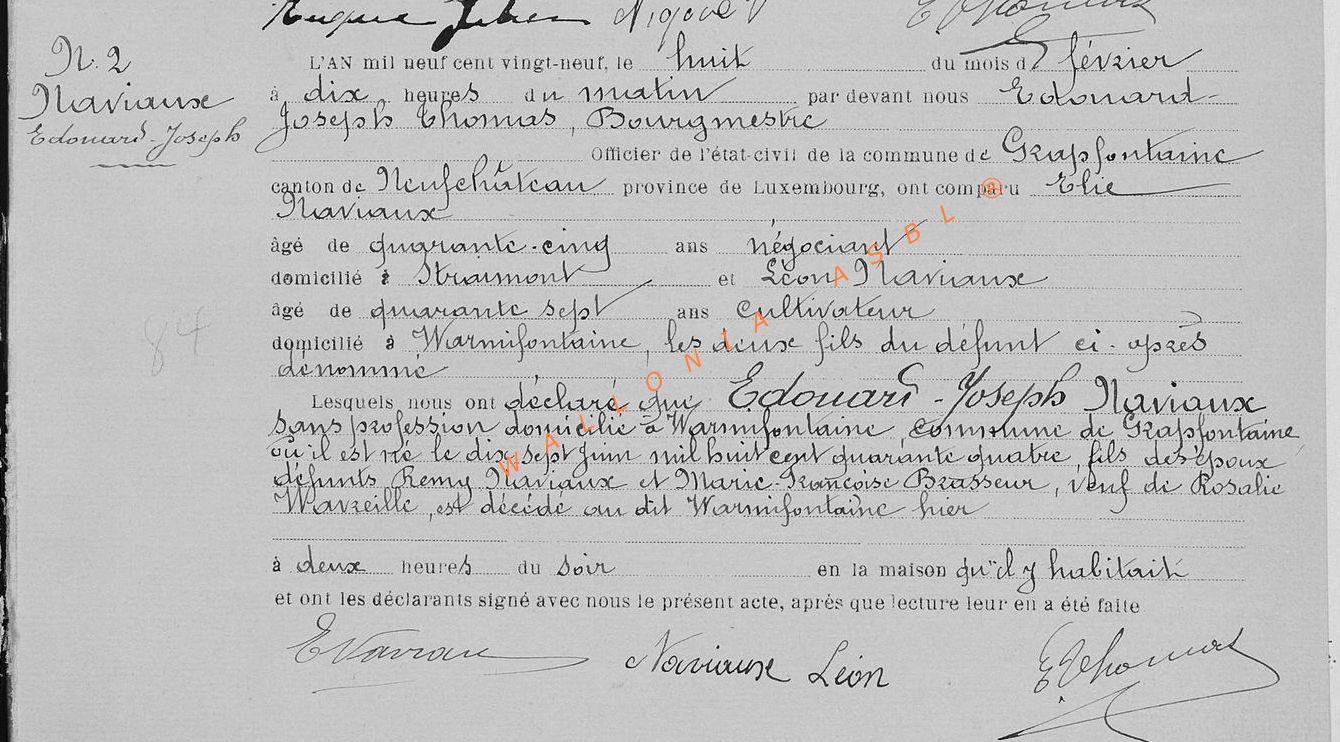 N. 2
Naviaux
Edouard-Joseph
84
L'AN mil neuf cent vingt-neuf, le huit du mois de février
à dix heures du matin par devant nous Edouard-
Joseph Thomas, Bourgmestre
Officier de l'état-civil de la commune de Grapfontaine
canton de Neufchâteau province de Luxembourg, ont comparu Elie
Naviaux
âgé de quarante-cinq ans négociant
domicilié à Straimont et Léon Naviaux
âgé de quarante sept ans cultivateur
domicilié à Warmifontaine, les deux fils du défunt ci-après
dénommé
Lesquels nous ont déclaré que Edouard-Joseph Naviaux
sans profession domicilié à Warmifontaine, commune de Grapfontaine,
où il est né le dix sept juin mil huit cent quarante quatre, fils des époux
défunts Remy Naviaux et Marie-Françoise Brasseur, veuf de Rosalie
Warzeille, est décédé au dit Warmifontaine hier
à deux heures du soir en la maison qu'il y habitait
et ont les déclarants signé avec nous le présent acte, après que lecture leur en a été faite
ENaviaux Naviaux Léon EJThomas
WALLONIA ASBL ®